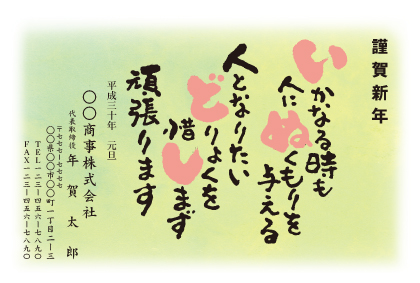 謹賀新年
いかなる時も
人にぬくもりを与える
人となりたい
どりょくを
惜しまず
頑張ります
平成三十年 元旦
〇〇商事株式会社
代表取締役 年賀太郎
〒七七七-七七七七
〇〇県〇〇市〇〇町一丁目二-三
TEL一二三-四五六-七八九〇
FAX一二三-四五六-七八九〇